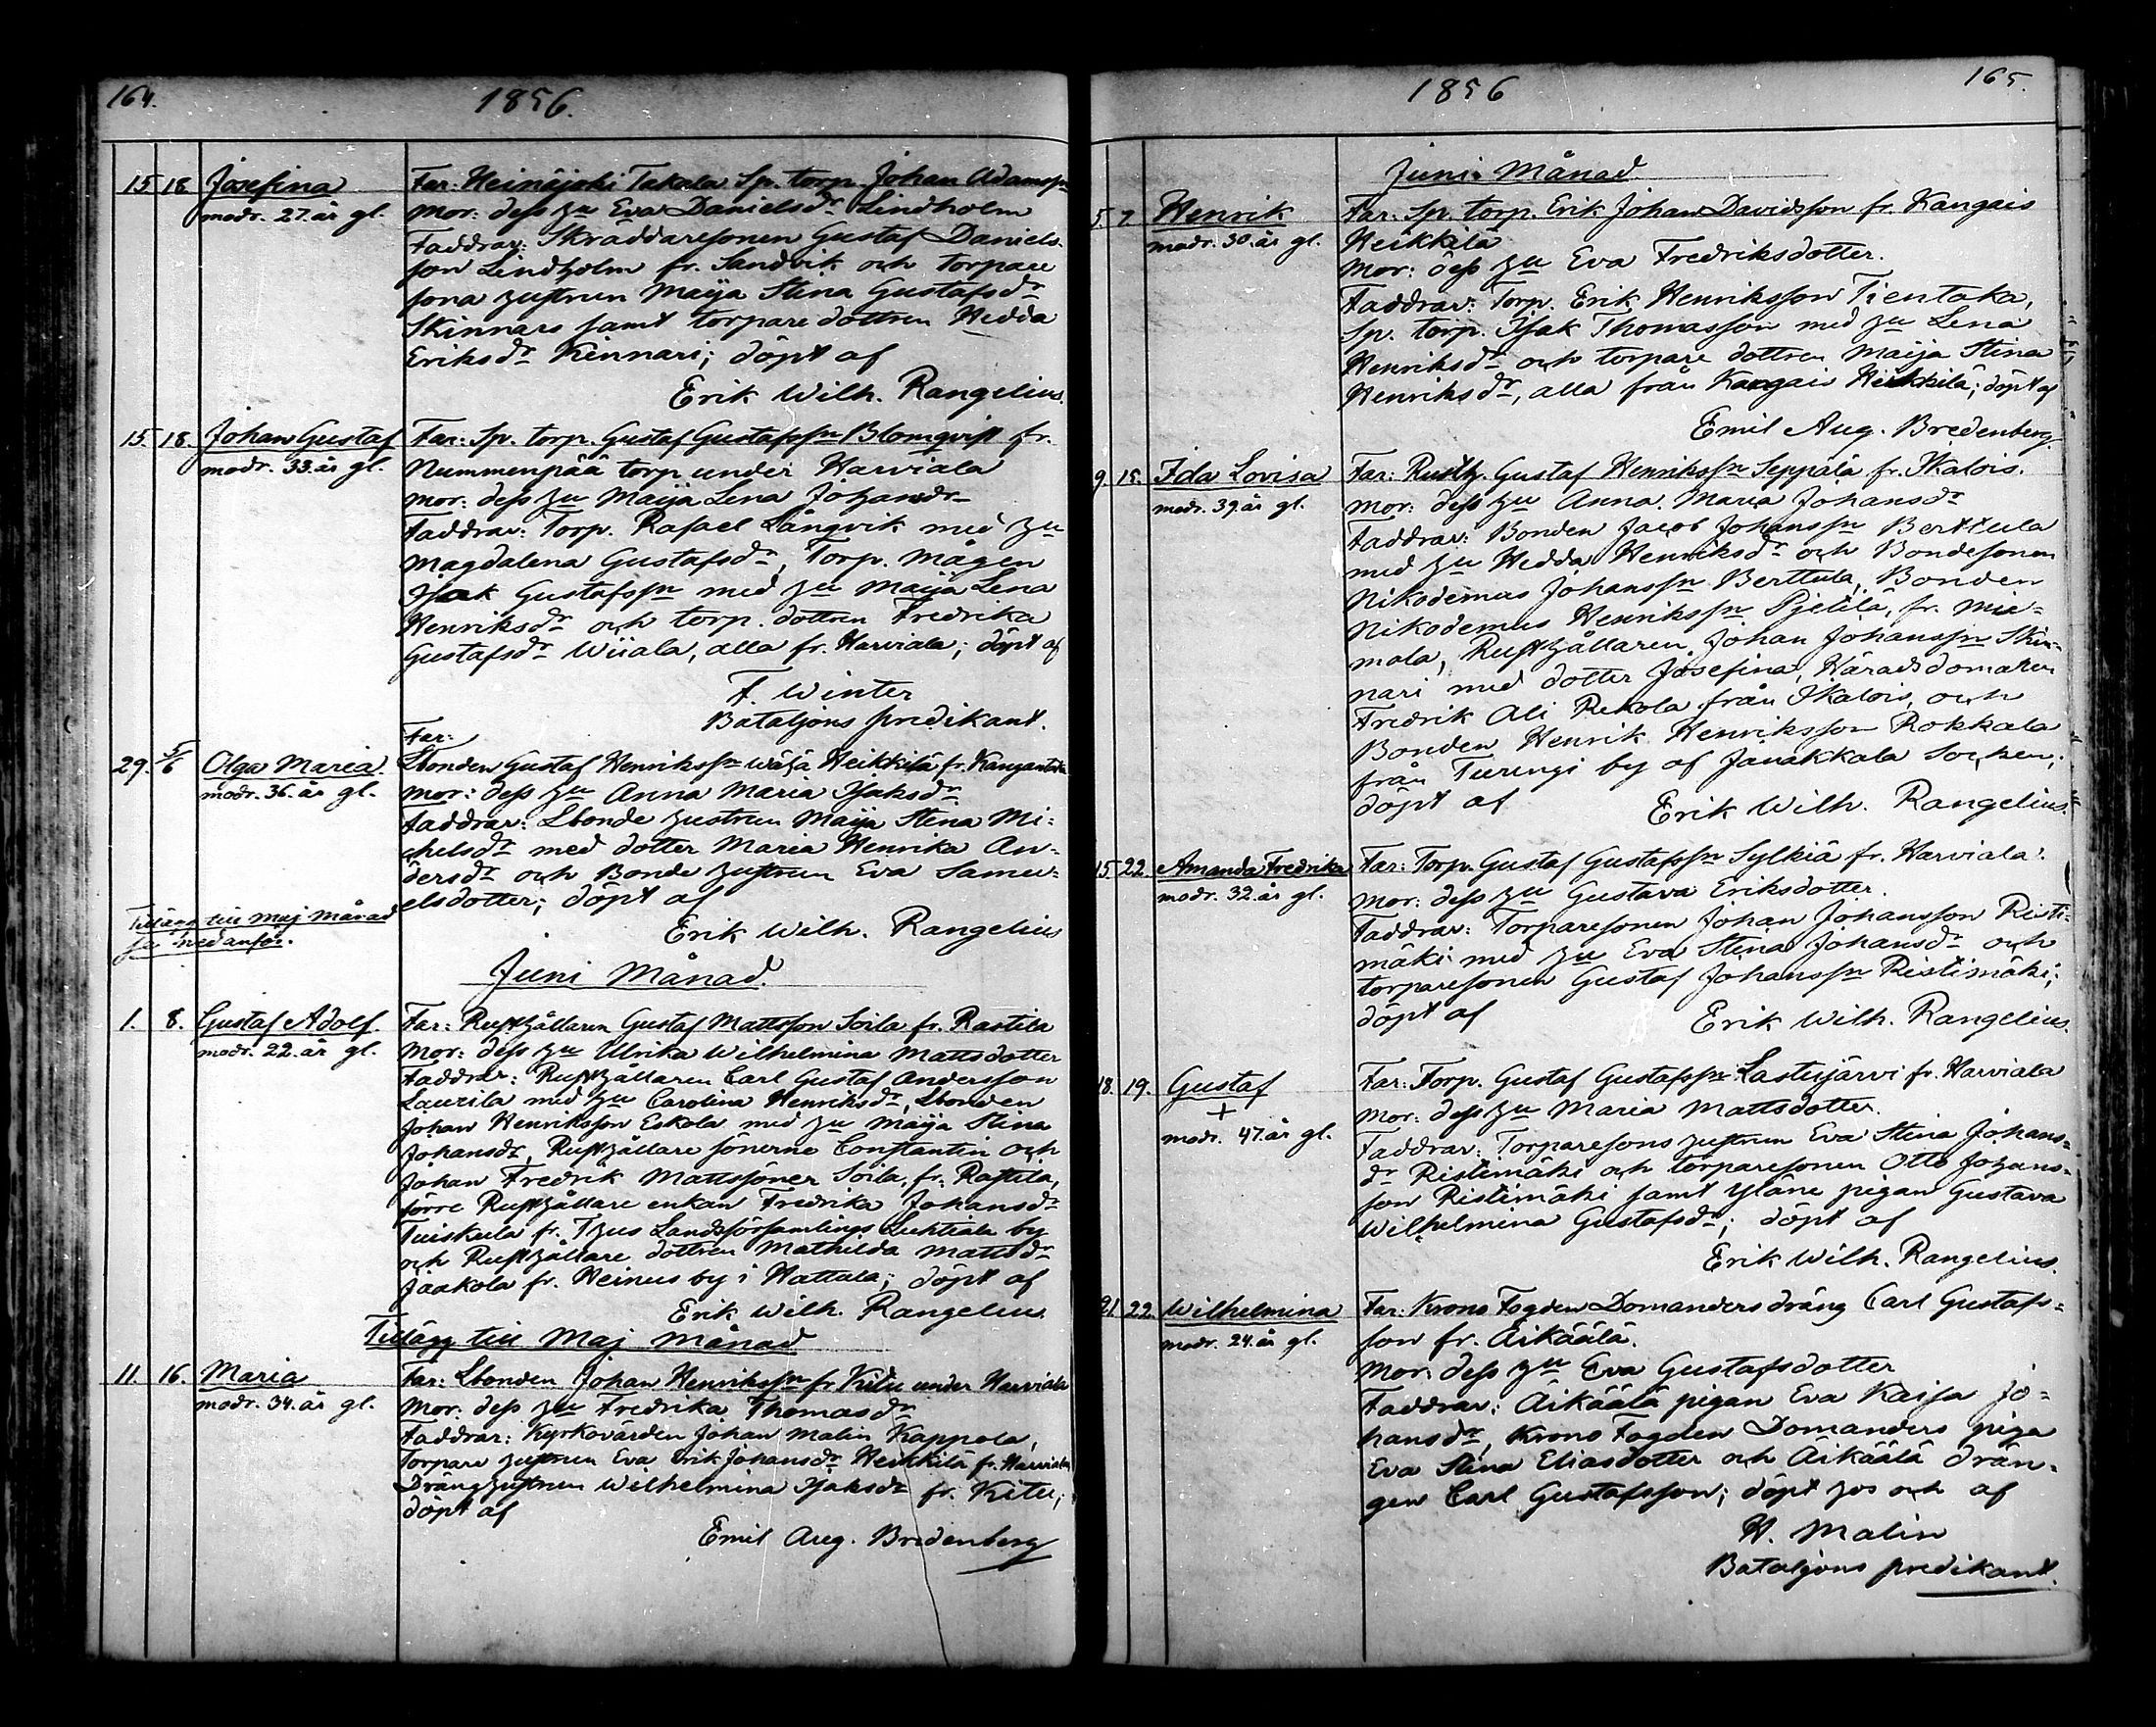 164.
1856.
15. 18. Josefina Far: Heinäjoki Takala Sp. torp. Johan Adamssn
modr. 27. år gl. Mor: dess hu Eva Danielsdr Lindholm
Faddrar: Skräddaresonen Gustaf Daniels-
son Lindholm fr. Sandvik och torpare
sona hustrun Maija Stina Gustafsdr
Skinnars samt torpare dottren Hedda
Eriksdr Kinnari; döpt af
Erik Wilh. Rangelius.
15. 18. Johan Gustaf Far: Sp. torp. Gustaf Gustafssn Blomqvist fr.
modr. 33. år gl. Nummenpää torp under Harviala
Mor: dess hu Maija Lena Johansdr
Faddrar: Torp. Rafael Långvik med hu
Magdalena Gustafsdr, Torp. mågen
Isaak Gustafssn med hu Maija Lena
Henriksdr och torp. dottren Fredrika
Gustafsdr Wiiala, alla fr. Harviala; döpt af
F. Winter
Bataljons predikant.
Far:
29. 5/6 Olga Maria. Lbonden Gustaf Henrikssn Wähä Heikkilä fr. Kangantaka
modr. 36. år gl. Mor: dess hu Anna Maria Isaksdr
Faddrar: Lbonde hustrun Maija Stina Mi-
chelsdr med dotter Maria Henrika An-
dersdr och Bonde hustrun Eva Samu-
elsdotter; döpt af
Tillägg till Maj månad
se nedanför.
Erik Wilh. Rangelius
Juni Månad.
1. 8. Gustaf Adolf. Far: Rusthållaren Gustaf Mattsson Soila fr. Rastila
modr. 22. år gl. Mor: dess hu Ulrika Wilhelmina Mattsdotter
Faddrar: Rusthållaren Carl Gustaf Andersson
Laurila med hu Carolina Henriksdr, Lbonden
Johan Henriksson Eskola med hu Maija Stina
Johansdr, Rusthållare sönerne Constantin och
Johan Fredrik Mattssöner Soila, fr. Rastila,
förre Rusthållare enkan Fredrika Johansdr
Tuiskula fr. Thus Landsförsamlings Luhtiala by
och Rusthållare dottren Mathilda Mattsdr
Jaakola fr. Heinus by i Hattula; döpt af
Erik Wilh. Rangelius.
Tillägg till Maj Månad
11. 16. Maria Far: Lbonden Johan Henrikssn fr Kitu under Harviala
modr. 34. år gl. Mor: dess hu Fredrika Thomasdr
Faddrar: Kyrkovärden Johan Malin Kappola,
Torpare hustrun Eva Erik Johansdr Heikkilä fr. Harviala,
Dränghustrun Wilhelmina Isaksdr fr. Kitu;
döpt af
Emil Aug. Bredenberg
1856
165.
Juni Månad
5. 7. Henrik Far: Sp. torp. Erik Johan Davidsson fr. Kangais
modr. 30. år gl. Heikkilä
Mor: dess hu Eva Fredriksdotter.
Faddrar: Torp. Erik Henriksson Tientaka,
Sp. torp. Isak Thomasson med hu Lena
Henriksdr och torpare dottren Maija Stina
Henriksdr, alla från Kangais Heikkilä; döpt af
Emil Aug. Bredenberg.
9. 15. Ida Lovisa Far: Rusth. Gustaf Henrikssn Seppälä fr. Ikalois.
modr. 39. år gl. Mor: dess hu Anna Maria Johansdr
Faddrar: Bonden Jacob Johanssn Berttula
med hu Hedda Henriksdr och Bondesonen
Nikodemus Johanssn Berttula, Bonden
Nikodemus Henrikssn Pjetilä, fr. Mie-
mola, Rusthållaren Johan Johanssn Skin-
nari med dotter Josefina, Häradsdomaren
Fredrik Ali Rekola från Ikalois, och
Bonden Henrik Henriksson Rokkala
från Turengi by af Janakkala Socken;
döpt af Erik Wilh. Rangelius.
15. 22. Amanda Fredrika Far: Torp. Gustaf Gustafssn Sylkiä fr. Harviala.
modr. 32. år gl. Mor: dess hu Gustava Eriksdotter.
Faddrar: Torparesonen Johan Johansson Risti-
mäki med hu Eva Stina Johansdr och
torparesonen Gustaf Johanssn Ristimäki;
döpt af Erik Wilh. Rangelius.
18. 19. Gustaf Far: Torp. Gustaf Gustafssn Lastujärvi fr. Harviala
+
modr. 47. år gl. Mor: dess hu Maria Mattsdotter.
Faddrar: Torparesons hustrun Eva Stina Johans-
dr Ristimäki och torparesonen Otto Johans-
son Ristimäki samt Yläne pigan Gustava
Wilhelmina Gustafsdr; döpt af
Erik Wilh. Rangelius.
21. 22. Wilhelmina Far: Krono Fogden Domanders dräng Carl Gustafs-
modr. 24. år gl. son fr. Äikäälä.
Mor: dess hu Eva Gustafsdotter
Faddrar: Äikäälä pigan Eva Kaisa Jo-
hansdr, Krono Fogden Domanders piga
Eva Stina Eliasdotter och Äikäälä drän-
gen Carl Gustafsson; döpt hos och af
H. Malin
Bataljons predikant.